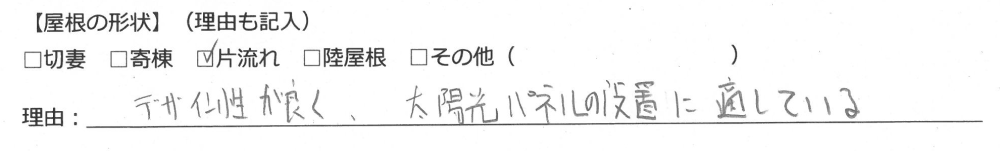 【屋根の形状】（理由も記入）
□切妻 □寄棟 ☑片流れ □陸屋根 □その他（ ）
理由：デザイン性が良く、太陽光パネルの設置に適している